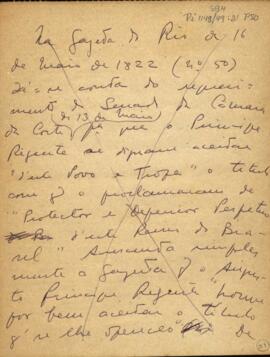 594
Pi 1148/49-:21 P30
Na Gazeta do Rio de 16
de Maio de 1822 (nº 50)
dá-se conta do requeri-
mento do Senado da Camara
da Corte (de 13 de maio) p.ª que o Principe
Regente se dignasse aceitar
"d'este Povo e Tropa" o titulo
com q o proclamaram de
"Protector e Defensor Perpetuo
d'este Reino do Bra-
sil" Anuncia simples
mente a Gazeta q o Augus-
to Principe Regente "houve
por bem aceitar o titulo
q' se lhe offereceo" de